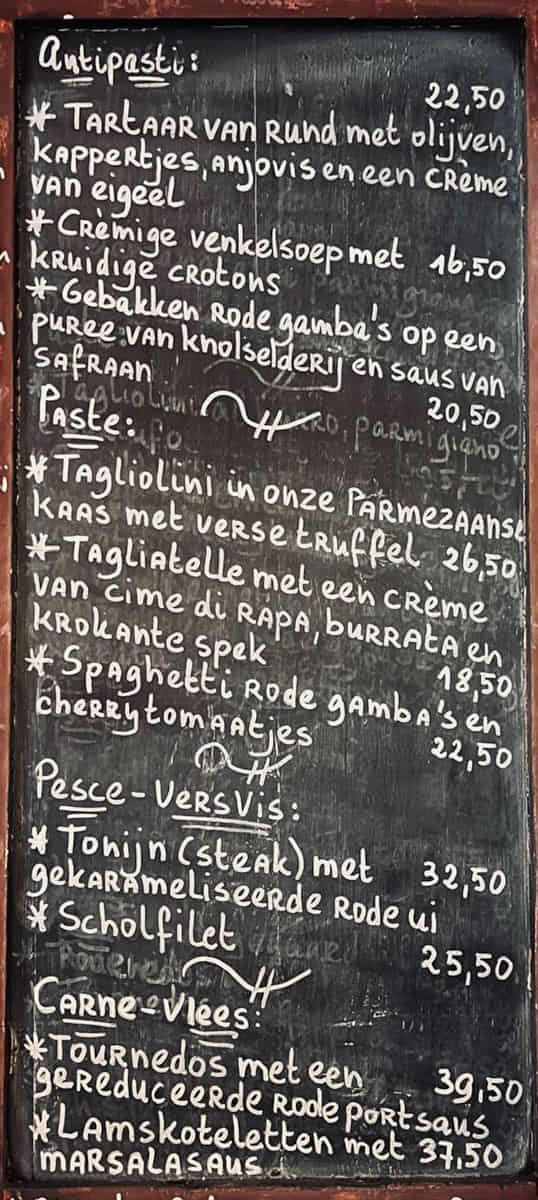 Antipasti:
22,50
* Tartaar van Rund met olijven,
kappertjes, anjovis en een crème
van eigeel
* Crèmige venkelsoep met 16,50
kruidige crotons
* Gebakken Rode gamba's op een
puree van knolselderij en saus van
safraan
20,50
Paste:
* Tagliolini in onze Parmezaanse
kaas met verse truffel 26,50
* Tagliatelle met een crème
van cime di Rapa, burrata en
krokante spek
18,50
* Spaghetti Rode gamba's en
cherrytomaatjes
22,50
Pesce - Versvis:
* Tonijn (steak) met 32,50
gekarameliseerde Rode ui
* Scholfilet
25,50
Carne - Vlees:
* Tournedos met een 39,50
gereduceerde Rode portsaus
* Lamskoteletten met 37,50
marsalasaus